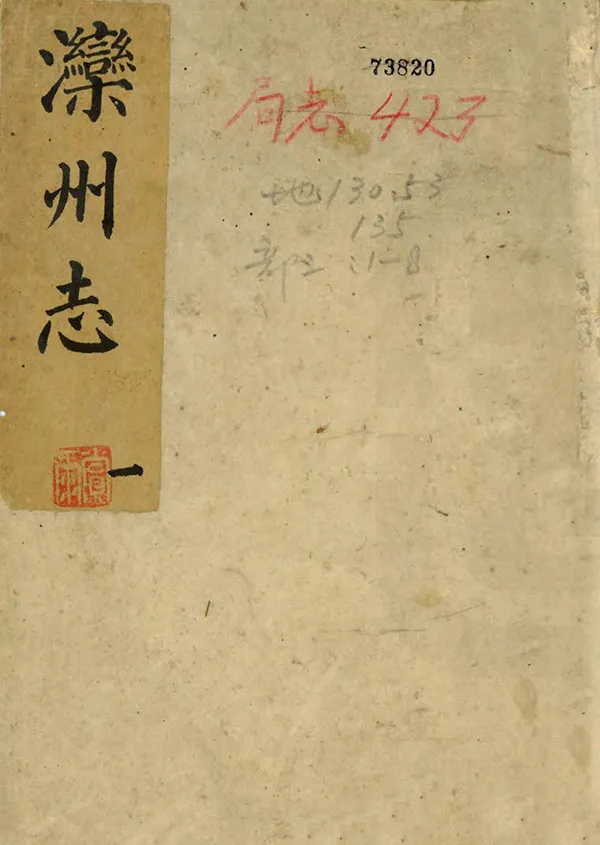 灤州志
一
73820
局志 423
地130.53
135
部2:1-8